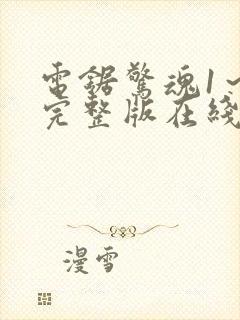 電鋸驚魂1
完整版在綫
漫雪